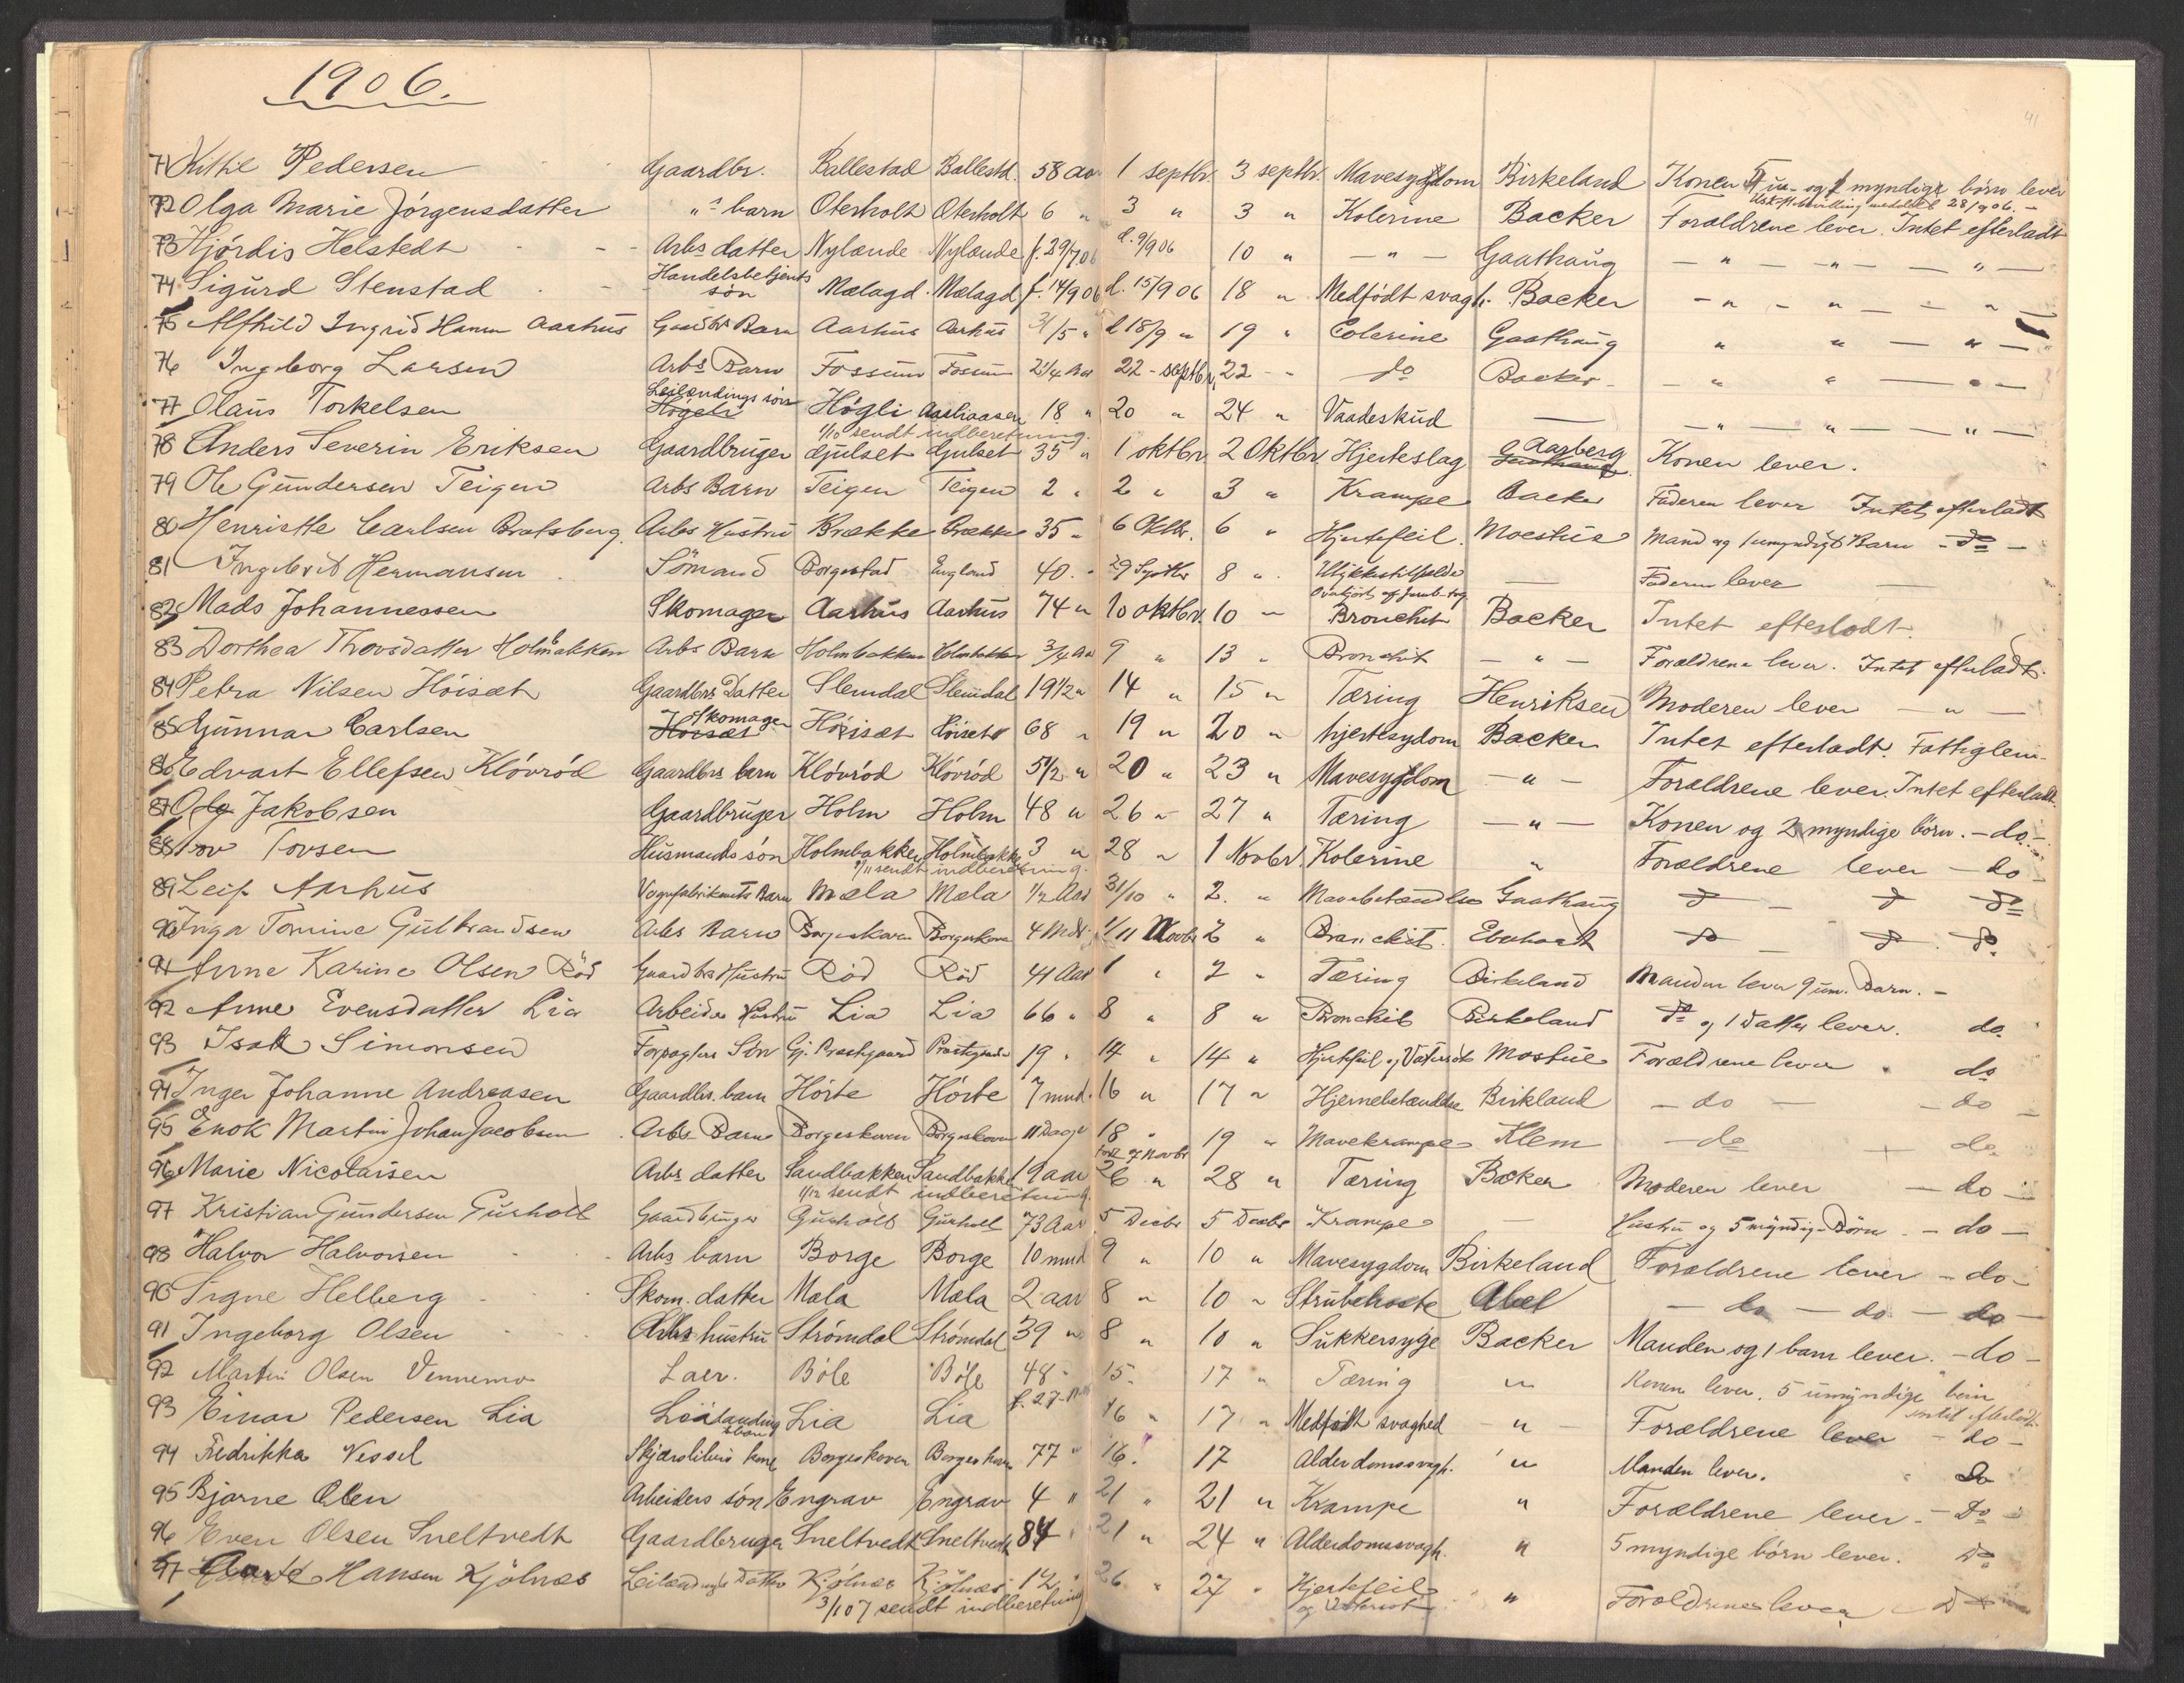 1906.
41
71 Kittil Pedersen Gaardbr. Ballestad Ballestd. 58 aar 1 septbr. 3 septbr. Mavesygdom Birkeland Konen og myndige børn lever
28/9 06. -
72 Olga Marie Jörgensdatter " barn Oterholt Oterholt 6 " 3 " 3 " Kolerine Backer Foraldrene lever. Intet efterladt
73 Hjördis Helstedt Arbs datter Nylænde Nylænde f. 29/7 06 d. 9/9 06 10 " - " - Gaathaug - " - " - " -
74 Sigurd Stenstad Handelsbetjents sön Mælagd. Mælagd f. 14/9 06 d. 15/9 06 18 " Medfödt svagh. Backer - " - " - " -
75 Alfhild Ingrid Hanna Aarhus Gaardbrs Barn Aarhus Aarhus 31/5 " d 18/9 " 19 " Colerine Gaathaug " " - " -
76 Ingeborg Larsen Arbs Barn Fossum Fossum 2 1/4 Aar 22 - septbr, 22 - " do Backer - - " " - " -
77 Olaus Torkelsen Leilændings sön Högli Högli Aashaasen 18 " 20 " 24 " Vaadeskud — - " - " - " -
1/10 sendt indberetning.
78 Anders Severin Eriksen Gaardbruger Gjulset Gjulset 35 " 1 oktbr. 2 Oktbr. Hjerteslag Aarberg Konen lever.
79 Ole Gundersen Teigen Arbs Barn Teigen Teigen 2 " 2 " 3 " Krampe Backer Faderen lever Intet efterladt
80 Henriette Carlsen Bratsberg. Arbs Hustru Brække Brække 35 " 6 Oktbr. 6 " Hjertefeil. Moestue Mand og 1 umyndigt Barn - do -
81 Ingebret Hermansen Sömand Borgestad England 40. " 29 Septbr 8 " Ulykkestilfælde — Faderen lever —
Overkjört af Jernb. tog
82 Mads Johannessen Skomager Aarhus Aarhus 74 " 10 oktbr. 10 - Bronchit Backer Intet efterladt.
83 Dorthea Thovsdatter Holmbakken Arbs Barn Holmbakken Holmbakken 3/4 Aar 9 " 13 " Bronchit - " - Forældrene lever. Intet efterladt.
84 Petra Nilsen Höisæt Gaardbrs Datter Slemdal Slemdal 19 1/2 " 14 " 15 " Tæring Henriksen Moderen lever - " -
85 Gunnar Carlsen Skomager Höisæt Höisæt Höisæt 68 " 19 " 20 " hjertesygdom Backer Intet efterladt. Fattiglem.
86 Edvart Ellefsen Klövröd Gaardbrs barn Klövröd Klövröd 5 1/2 " 20 " 23 " Mavesygdom - " - Forældrene lever. Intet efterladt.
87 Ole Jakobsen Gaardbruger Holm Holm 48 " 26 " 27 " Tæring - " - Konen og 2 myndige börn. - do -
88 Tov Tovsen Husmands sön Holmbakken Holmbakken 3 " 28 " 1 Novbr Kolerine " Forældrene lever - do -
1/11 sendt indberetning.
89 Leif Aarhus Vognfabrikants Barn Mæla Mæla 1/2 Aar 31/10 " 2. " Mavebetændelse Gaathaug do - do do
90 Inga Tomine Gulbrandsen Arbs Barn Borgeskoven Borgeskoven 4 Mdr. 1/11 Novbr 2 " Bronchit. do - do. do.
91 Anne Karine Olsen Röd Gaardbrs Hustru Röd Röd 41 Aar 1 " 2 " Tæring Birkeland Manden lever 9 um. Barn. -
92 Anne Evensdatter Lia Arbeider Hustru Lia Lia 66 " 8 " 8 " Bronchit Birkeland do og 1 datter lever. do.
93 Isak Simonsen Forpagters Sön Gj. Præstgaard Præstegaard 19 " 14 " 14 " Hjertefeil og Vatersot Mostue Forældrene lever " do
94 Inger Johanne Andreasen Gaardbrs. barn Hörte Hörte 7 mnd. 16 " 17 " Hjernebetændelse Birkland - do - - do -
95 Enok Martin Johan Jacobsen Arbs Barn Borgeskoven Borgeskoven 11 Dage 18 " 19 " Mavekrampe Klem - do - do
födt 7 Novbr
96 Marie Nicolaisen Arbs datter Sandbakken Sandbakken 19 aar 26 " 28 " Tæring Backer Moderen lever - do -
1/12 sendt indberetning.
97 Kristian Gundersen Gurholt Gaardbruger Gurholt Gurholt 73 Aar 5 Decbr 5 Decbr Krampe — Hustru og 5 myndige Börn - do -
98 Halvor Halvorsen Arbs barn Borge Borge 10 mnd 9 " 10 " Mavesygdom Birkeland Forældrene lever - do -
90 Signe Helberg Skom. datter Mæla Mæla 2 aar 8 " 10 " Strubehoste Abel - do - do - do -
91 Ingeborg Olsen Arbs hustru Strömdal Strömdal 39 " 8 " 10 " Sukkersyge Backer Manden og 1 barn lever. - do -
92 Martin Olsen Vennemo Laer. Böle Böle 48 " 15. 17 " Tæring " Konen lever. 5 umyndige börn
intet efterladt.
93 Einar Pedersen Lia Leilænding sbarn Lia Lia f. 27. 16 " 17 " Medfödt svaghed - " - Forældrene lever - do -
94 Fredrikka Vessel kone Borgeskoven Borgeskoven 77 " 16. 17 Alderdomssvagh. " Manden lever. Do
95 Bjarne Olsen Arbeiders sön Engrav Engrav 4 " 21 " 21 " Krampe " Forældrene lever. - Do -
96 Even Olsen Sneltvedt Gaardbruger Sneltvedt Sneltvedt 84 " 21 " 24 " Alderdomssvagh. " 5 myndige börn lever. Do
97 Hansen Kjölnæs Leilændings Datter Kjölnæs Kjölnæs 12 " 26 " 27 " Hjertefeil " Forældrene lever Do
3/1 07 sendt indberetning og Vatersot